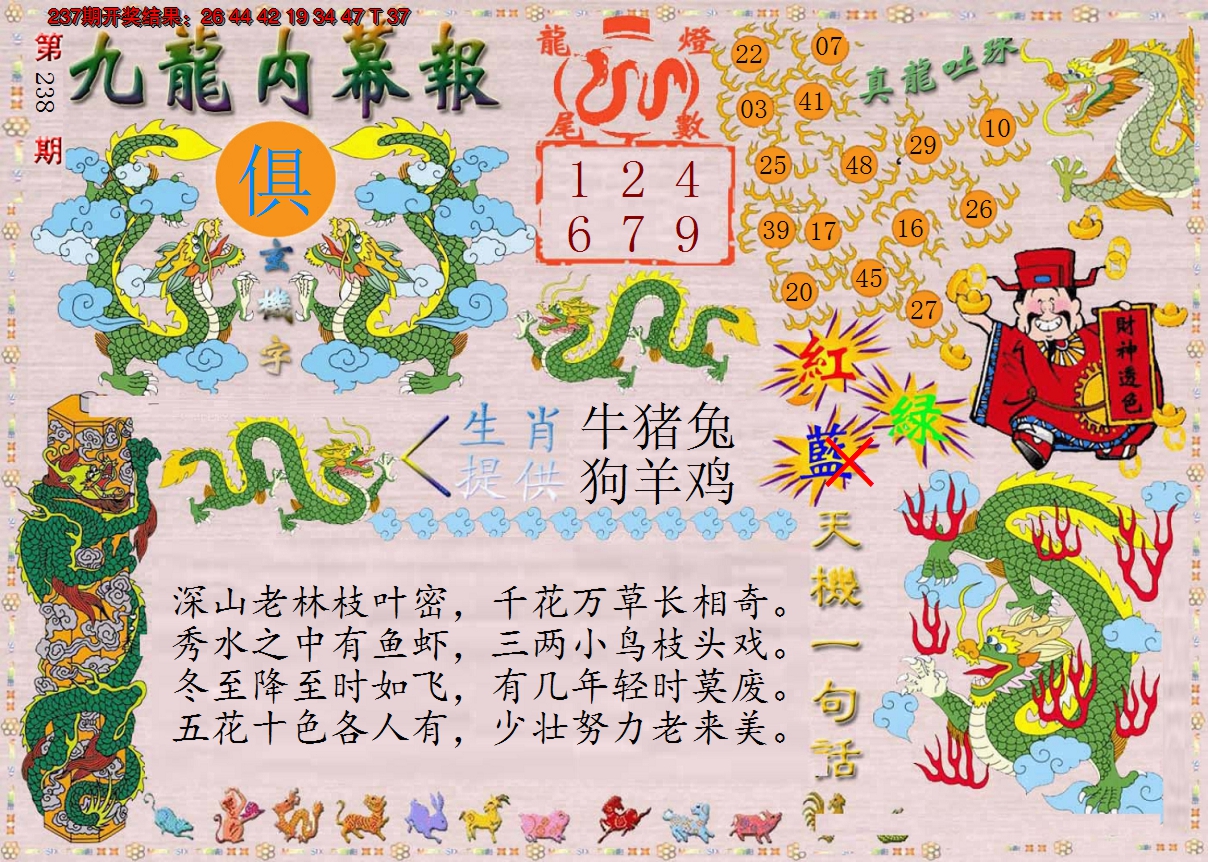 237期开奖结果：26 44 42 19 34 47 T 37
第238期
九龍内幕報
俱
玄機字
龍燈
尾數
1 2 4
6 7 9
真龍吐珠
22
07
03
41
10
29
25
48
26
39
17
16
45
20
27
紅
綠
藍
財神透色
生肖
提供
牛猪兔
狗羊鸡
天機一句话
深山老林枝叶密，千花万草长相奇。
秀水之中有鱼虾，三两小鸟枝头戏。
冬至降至时如飞，有几年轻时莫废。
五花十色各人有，少壮努力老来美。